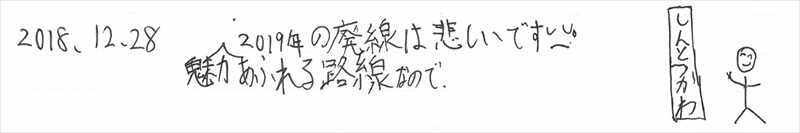 2018、12、28
2019年の廃線は悲しいです
魅力あふれる路線なので.
しんとつがわ